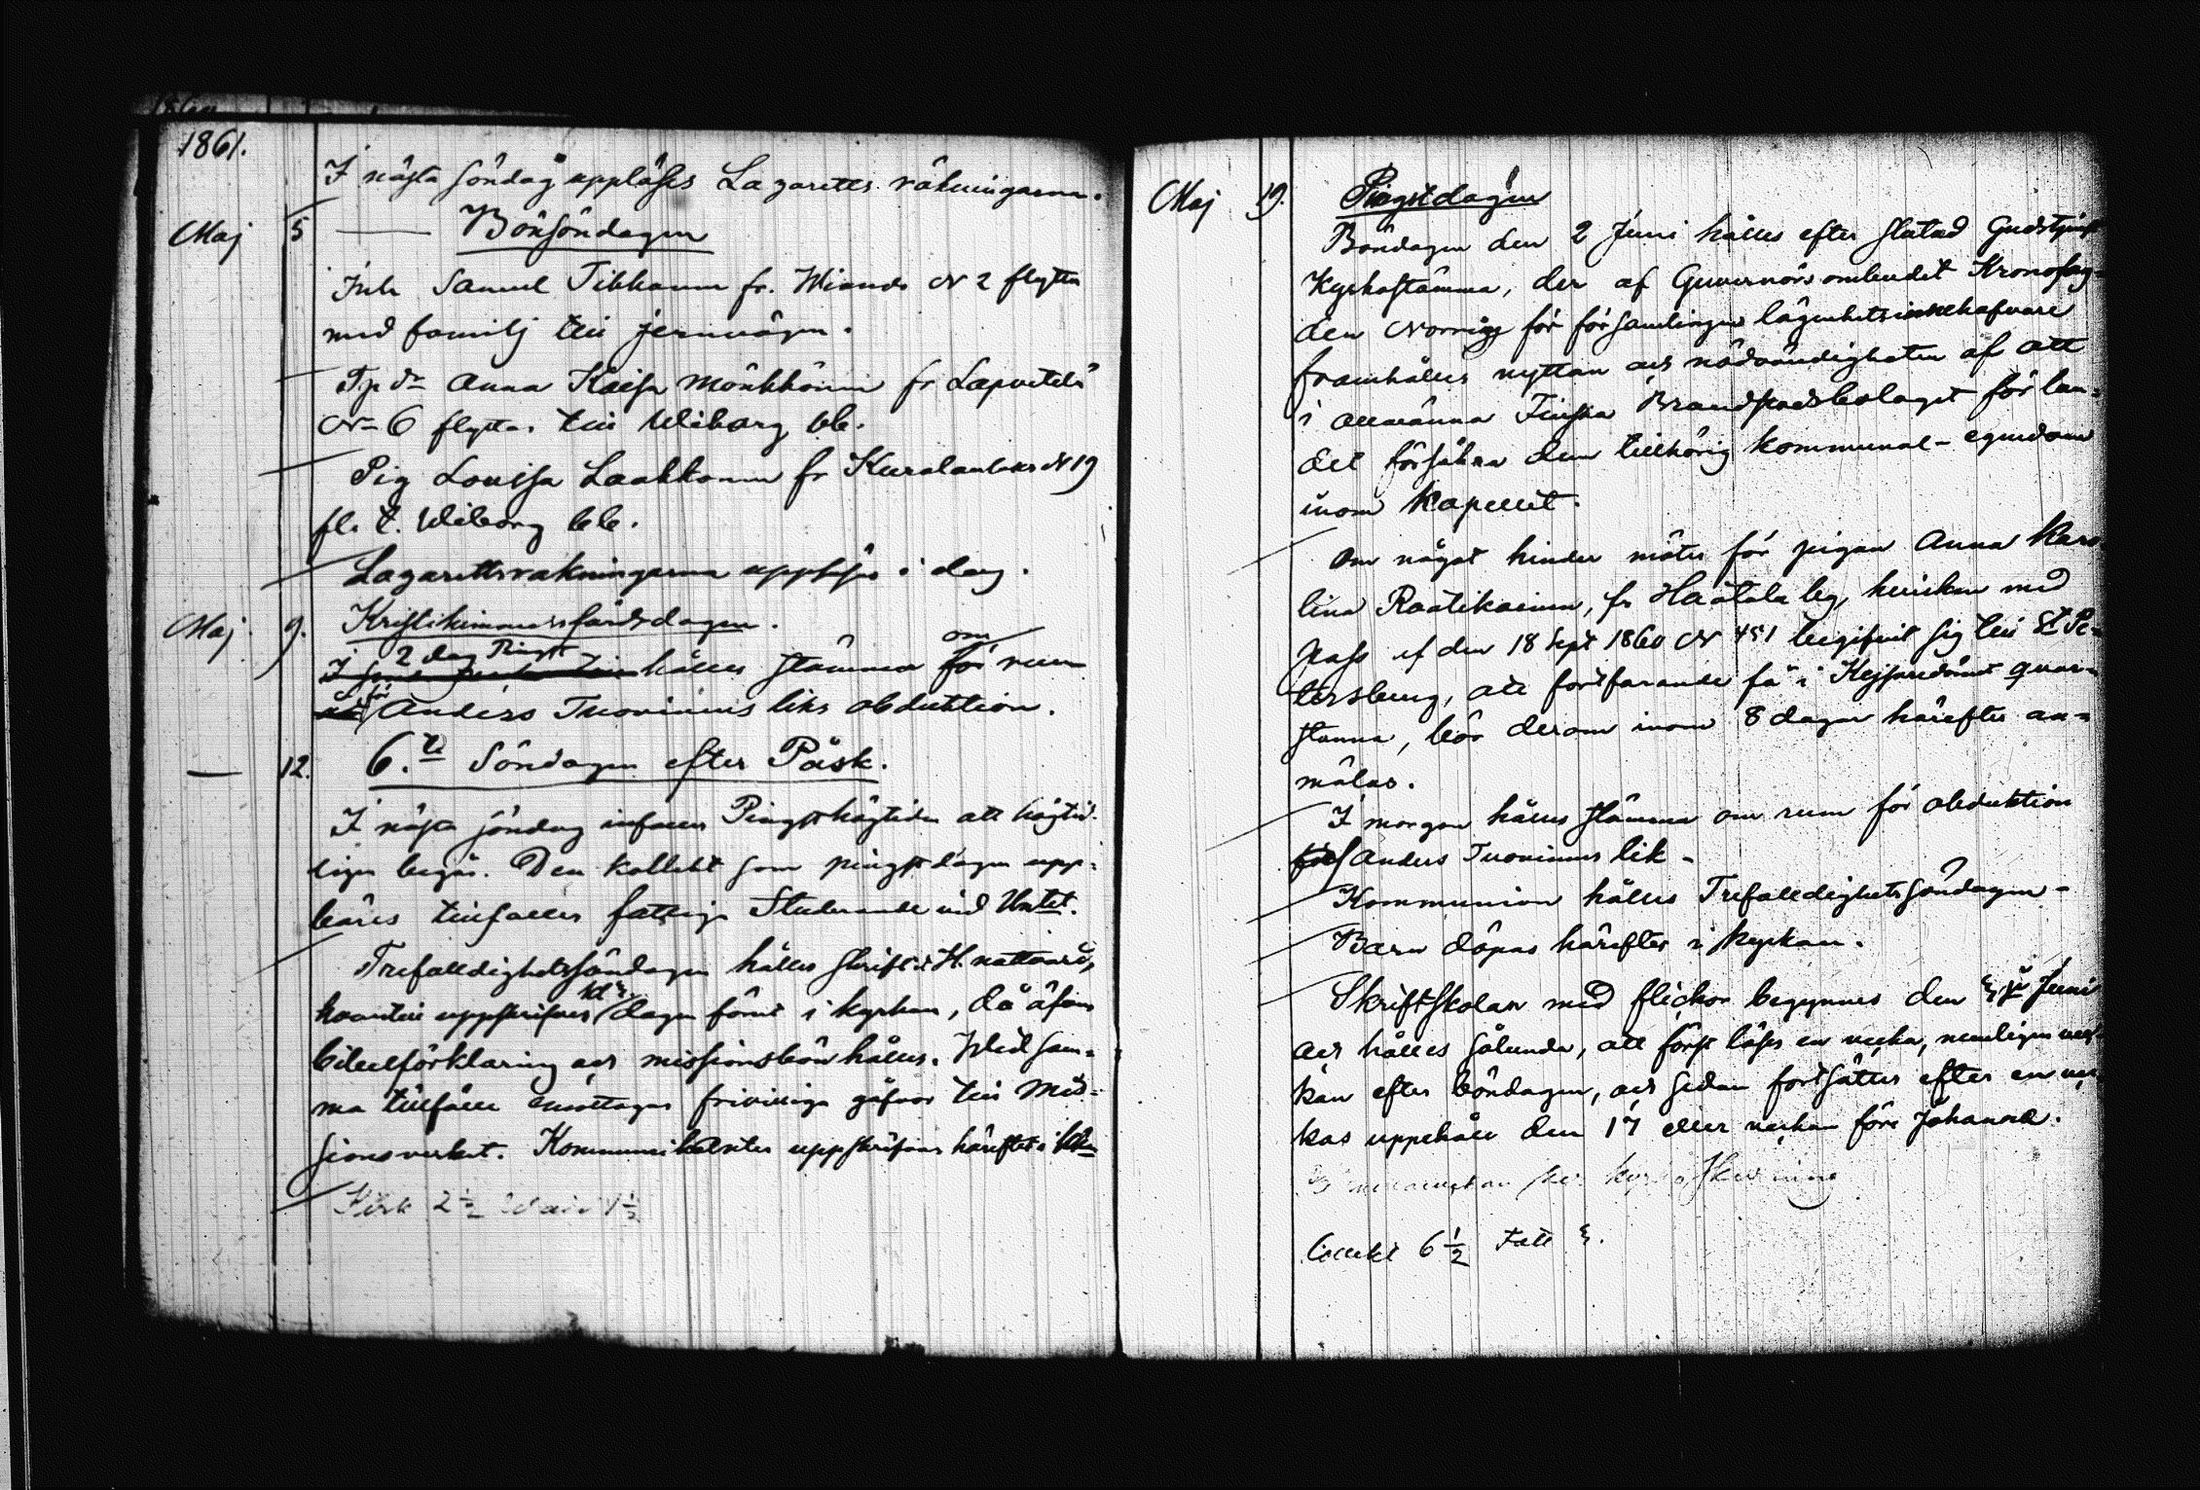 1861.
I nästa söndag uppläses Lazaretts räkningarna.
Maj 5 Bönsöndagen
Inh Samuel Tikkanen fr. Wiands N 2 flytta
med familj till jernvägen.
Tp dr Anna Kaisa Mönkkönen fr Lapvetelä
N 6 flyttar till Wiborg bb.
Pig Lovisa Laakkonen fr Kuralanlaks N 19
fl. t. Wiborg bb.
Lazarettsräkningarna uppläses i dag.
Maj 9. Kristi himmelsfärdsdagen.
2 dag Pingst hålles stämma om rum
för Anders Tuovinens liks obduktion.
— 12. 6.te Söndagen efter Påsk.
I nästa söndag infaller Pingsthögtiden att högtid-
ligen begås. Den kollekt som pingstdagen upp-
bäres tillfaller fattige Studerande vid Untet.
Trefalldighetssöndagen hålles skrift o H. nattvard,
hvartill uppskrifves dagen förut i kyrkan, då äfven
bibelförklaring och missionsbön hålles. Wid sam-
ma tillfälle emottages frivilliga gåfvor till Mis-
sionsverket. Kommunikanter uppskrifvas härefter i
Kirk 2 ½ 1 ½
Maj 19. Pingstdagen
Böndagen den 2 Juni hålles efter slutad Gudstjenst
Kyrkostämma, der af Guvernörsombudet Kronofog-
den Norring för församlingens lägenhetsinnehafvare
framhålles nyttan och nödvändigheten af att
i allmänna Finska Brandstodsbolaget för lan-
det försäkra dem tillhörig kommunal-egendom
inom kapellet.
Om något hinder möter för pigan Anna Karo
lina Raatikainen, fr Haatala by, hvilken med
pass af den 18 Sept 1860 N 451 begifvit sig till St Pe-
tersburg, att fortfarande få i Kejsaredömet quar-
stanna, bör derom inom 8 dagar härefter an-
mälas.
I morgon hålles stämma om rum för obduktion
af Anders Tuovinens lik -
Kommunion hålles Trefalldighetssöndagen -
Barn döpas härefter i kyrkan.
Skriftskolan med flickor begynnes den Juni
och hålles sålunda, att först läses en vecka, nemligen vec-
kan efter böndagen, och sedan fortsättes efter en vec
kas uppehåll den 17 eller veckan före Johannes.
6 ½